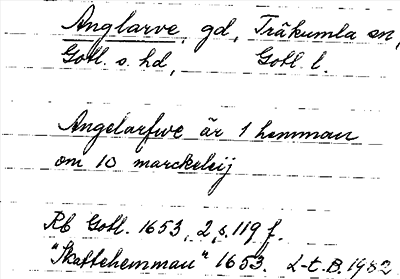 Anglarve, gd, Träkumla sn,
Gotl. s. hd, Gotl. l.
Angelarfwe är 1 hemman
om 10 marckeleij
Rb Gotl. 1653, 2, s. 119 f.
"Skattehemman" 1653. L-t. B. 1982